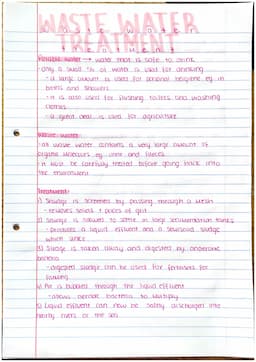 WASTE WATER
TREATMENT
Waste water
treatment
Potable water → water that is safe to drink
- only a small % of water is used for drinking
- a large amount is used for personal hygiene eg in
baths and showers
- it is also used for flushing toilets and washing
clothes
- a great deal is used for agriculture
Waste water
- all waste water contains a very large amount of
organic molecules eg urine and faeces
- it must be carefully treated before going back into
the environment
Treatment:
1) Sewage is screened by passing through a mesh
- removes solids + pieces of grit
2) Sewage is allowed to settle in large sedimentation tanks
- produces a liquid effluent and a semisolid sludge
which sinks
3) Sludge is taken away and digested by anaerobic
bacteria
- digested sludge can be used for fertilisers for
farming
4) Air is bubbled through the liquid effluent
- allows aerobic bacteria to multiply
5) Liquid effluent can now be safely discharged into
nearby rivers or the sea